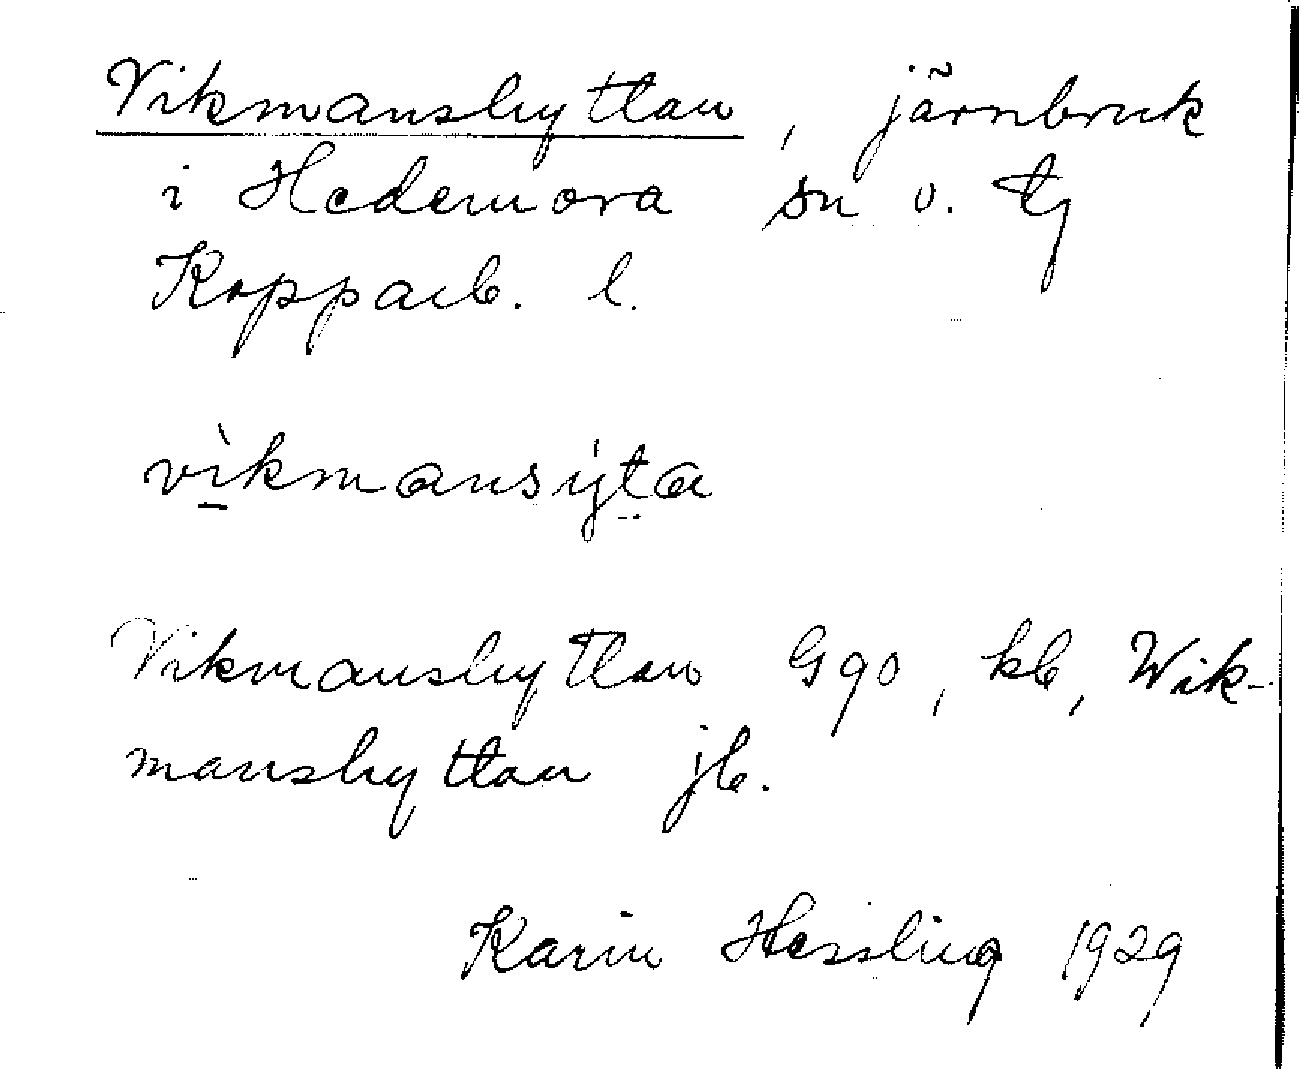 Vikmanshyttan, järnbruk
i Hedemora sn o. tg
Kopparb. l.
vìkmansýta
Vikmanshyttan G90, kb, Wik-
manshyttan jb.
Karin Hessling 1929